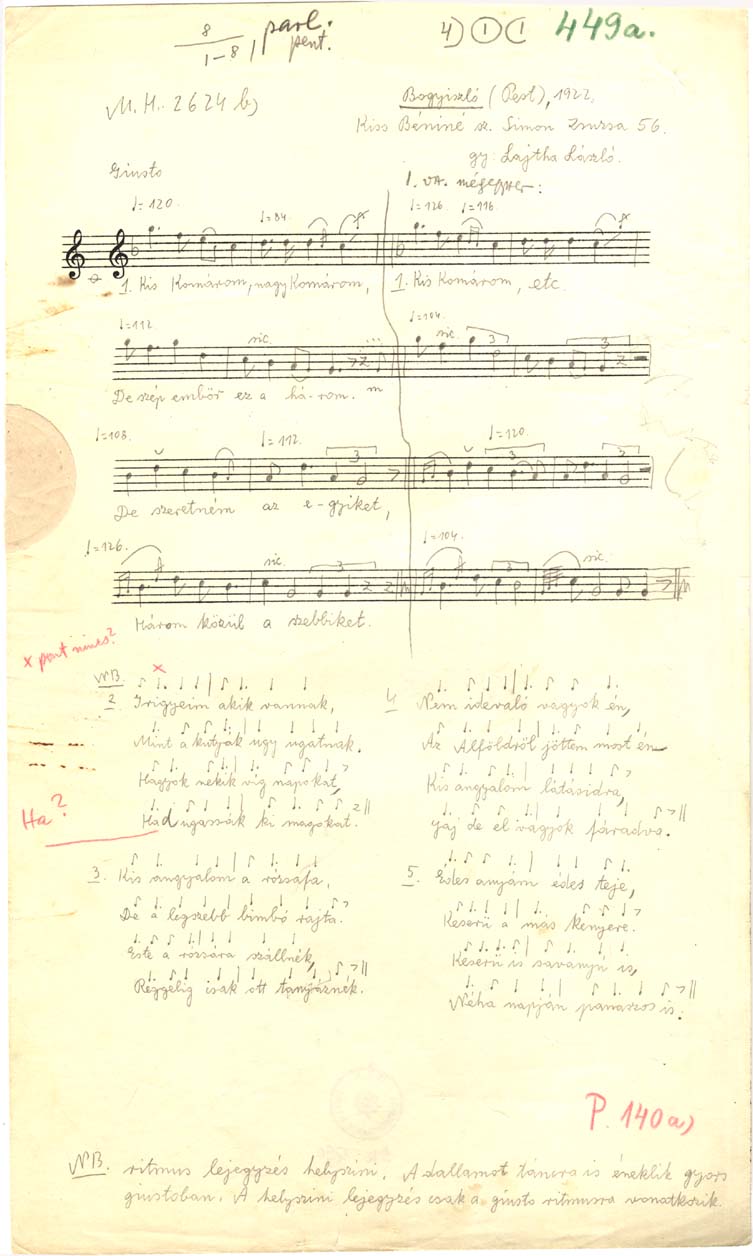 8
1-8, parl.
pent.
4) ① (1 449a.
M. H. 2624 b)
Bogyiszló (Pest), 1922.
Kiss Béniné sz. Simon Zsuzsa 56.
gy: Lajtha László.
Giusto
1. va. mégegyszer:
♩=120. ♩=84 ♩=126 ♩=116
1. Kis Komárom, nagy Komárom, 1. Kis Komárom, etc.
♩=112 sic. ♩=104 sic. 3 3
De szép embör ez a há-rom. m
♩=108. ♩=112. 3 ♩=120 3 3
De szeretném az e-gyiket,
♩=126. sic. 3 ♩=104. 3 sic.
Három közül a szebbiket.
x pont nincs?
NB.
x
2. Irigyeim akik vannak,
Mint a kutyák ugy ugatnak.
Hagyok nekik víg napokat,
Had ugassák ki magokat.
Ha?
3. Kis angyalom a rózsafa,
De a legszebb bimbó rajta.
Este a rózsára szállnék,
Reggelig csak ott tanyáznék.
4. Nem idevaló vagyok én,
Az Alföldről jöttem most én
Kis angyalom látásidra,
Jaj de el vagyok fáradva.
5. Édes anyám édes teje,
Keserü a más kenyere.
Keserü is savanyú is,
Néha napján panaszos is.
P. 140a)
NB. ritmus lejegyzés helyszini. A dallamot táncra is éneklik gyors
giustoban. A helyszini lejegyzés csak a giusto ritmusra vonatkozik.